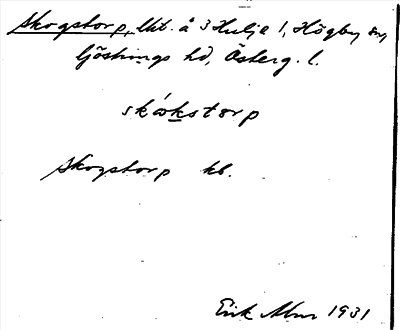 Skogstorp, lht. å 3 Hulje 1, Högby sn,
Göstrings hd, Österg. l.
skåkstorp
Skogstorp kb.
Erik Abr 1931